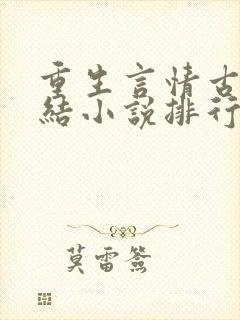 重生言情古
結小說排行
莫雷簽